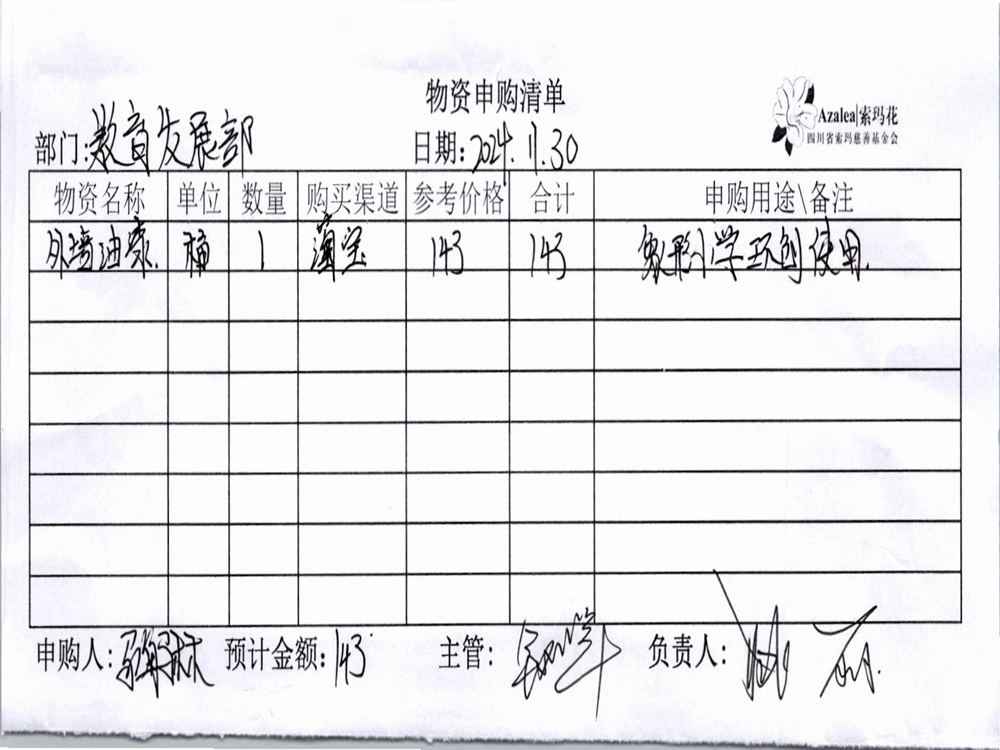 物资申购清单
Azalea|索玛花
四川省索玛慈善基金会
部门:教育发展部 日期:2024.11.30
物资名称 单位 数量 购买渠道 参考价格 合计 申购用途\备注
外墙油漆. 桶 1 淘宝 143 143 小学 使用.
申购人: 预计金额:143 主管: 负责人: